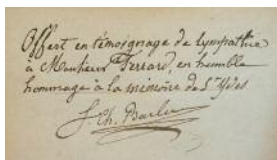 Offert en témoignage de sympathie
à Monsieur Ferrard, en humble
hommage à la mémoire de St Yves